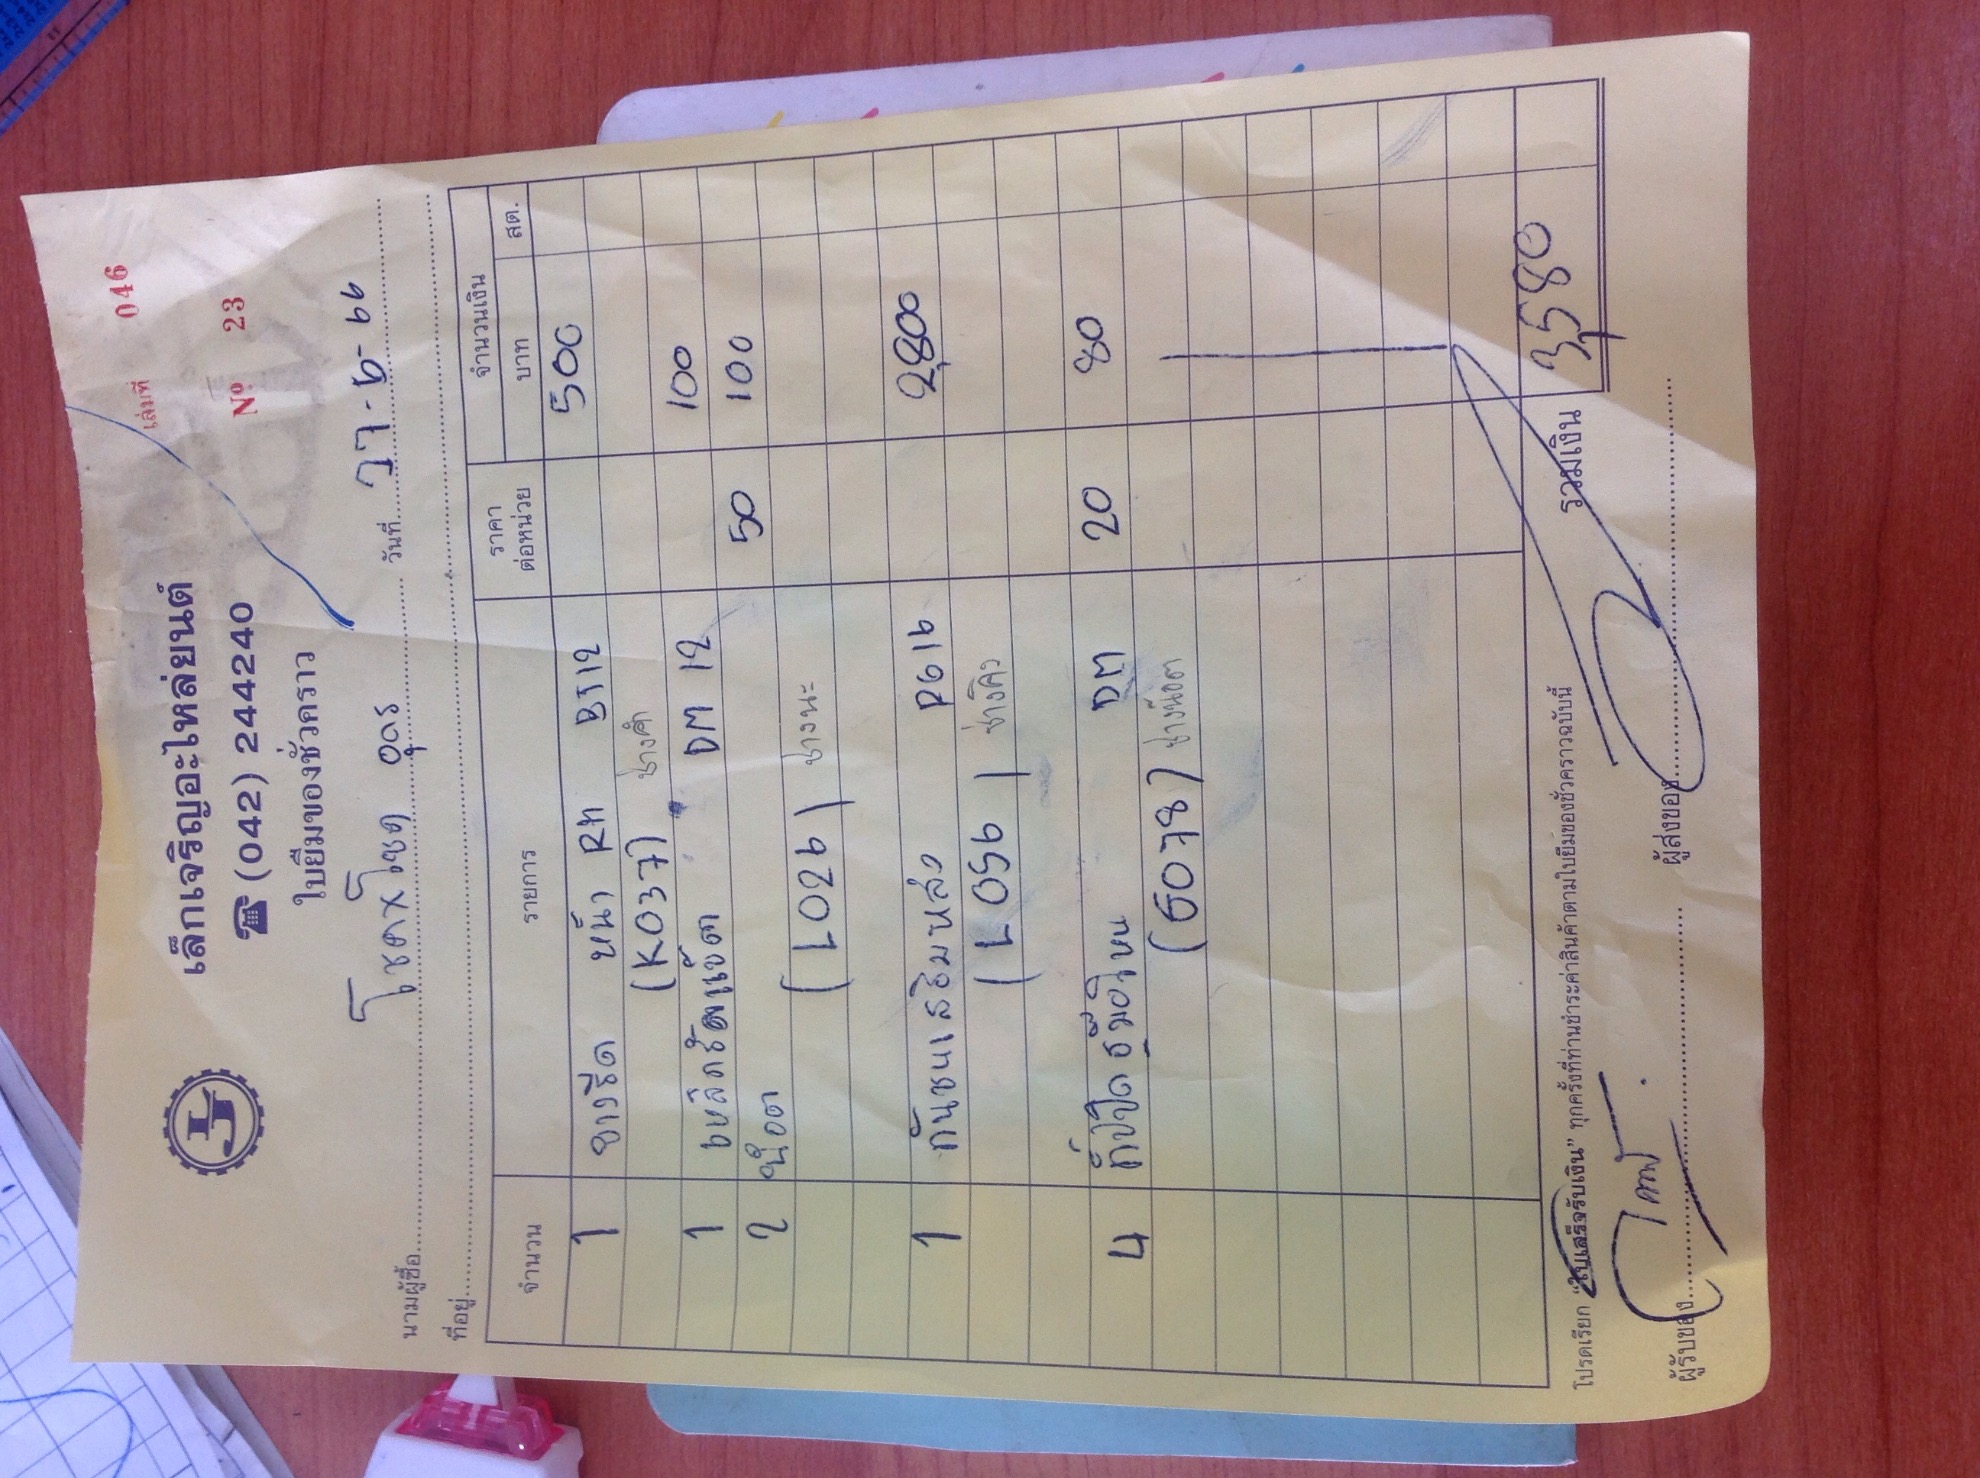 เล่มที่ 046
เล็กเจริญอะไหล่ยนต์
☎ (042) 244240
Nº 23
ใบยืมของชั่วคราว
นามผู้ซื้อ โชควโชต อุดร วันที่ 27-6-66
ที่อยู่
จำนวน รายการ ราคาต่อหน่วย จำนวนเงิน บาท สต.
1 ยางรีด หน้า RH BJ12 500
(K037) ช่างคำ
1 DM 12 100
2 น๊อต 50 100
(L026) ช่างนะ
1 กันชนเสริมหลัง P616 2,800
(L056) ช่างคิว
4 กิ๊ปปิด DM 20 80
(G078) ช่างน๊อต
รวมเงิน 3,580
โปรดเรียก “ใบเสร็จรับเงิน” ทุกครั้งที่ท่านชำระค่าสินค้าตามใบยืมของชั่วคราวฉบับนี้
ผู้รับของ ผู้ส่งของ